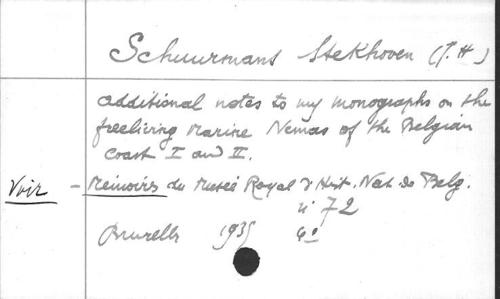 Schuurmans Stekhoven (J.H)
Additional notes to my monographs on the
freeliving marine Nemas of the Belgian
coast I and II.
Voir - Mémoires du Musée Royal d'Hist. Nat. de Belg.
n° 72
Bruxelles 1935 4°